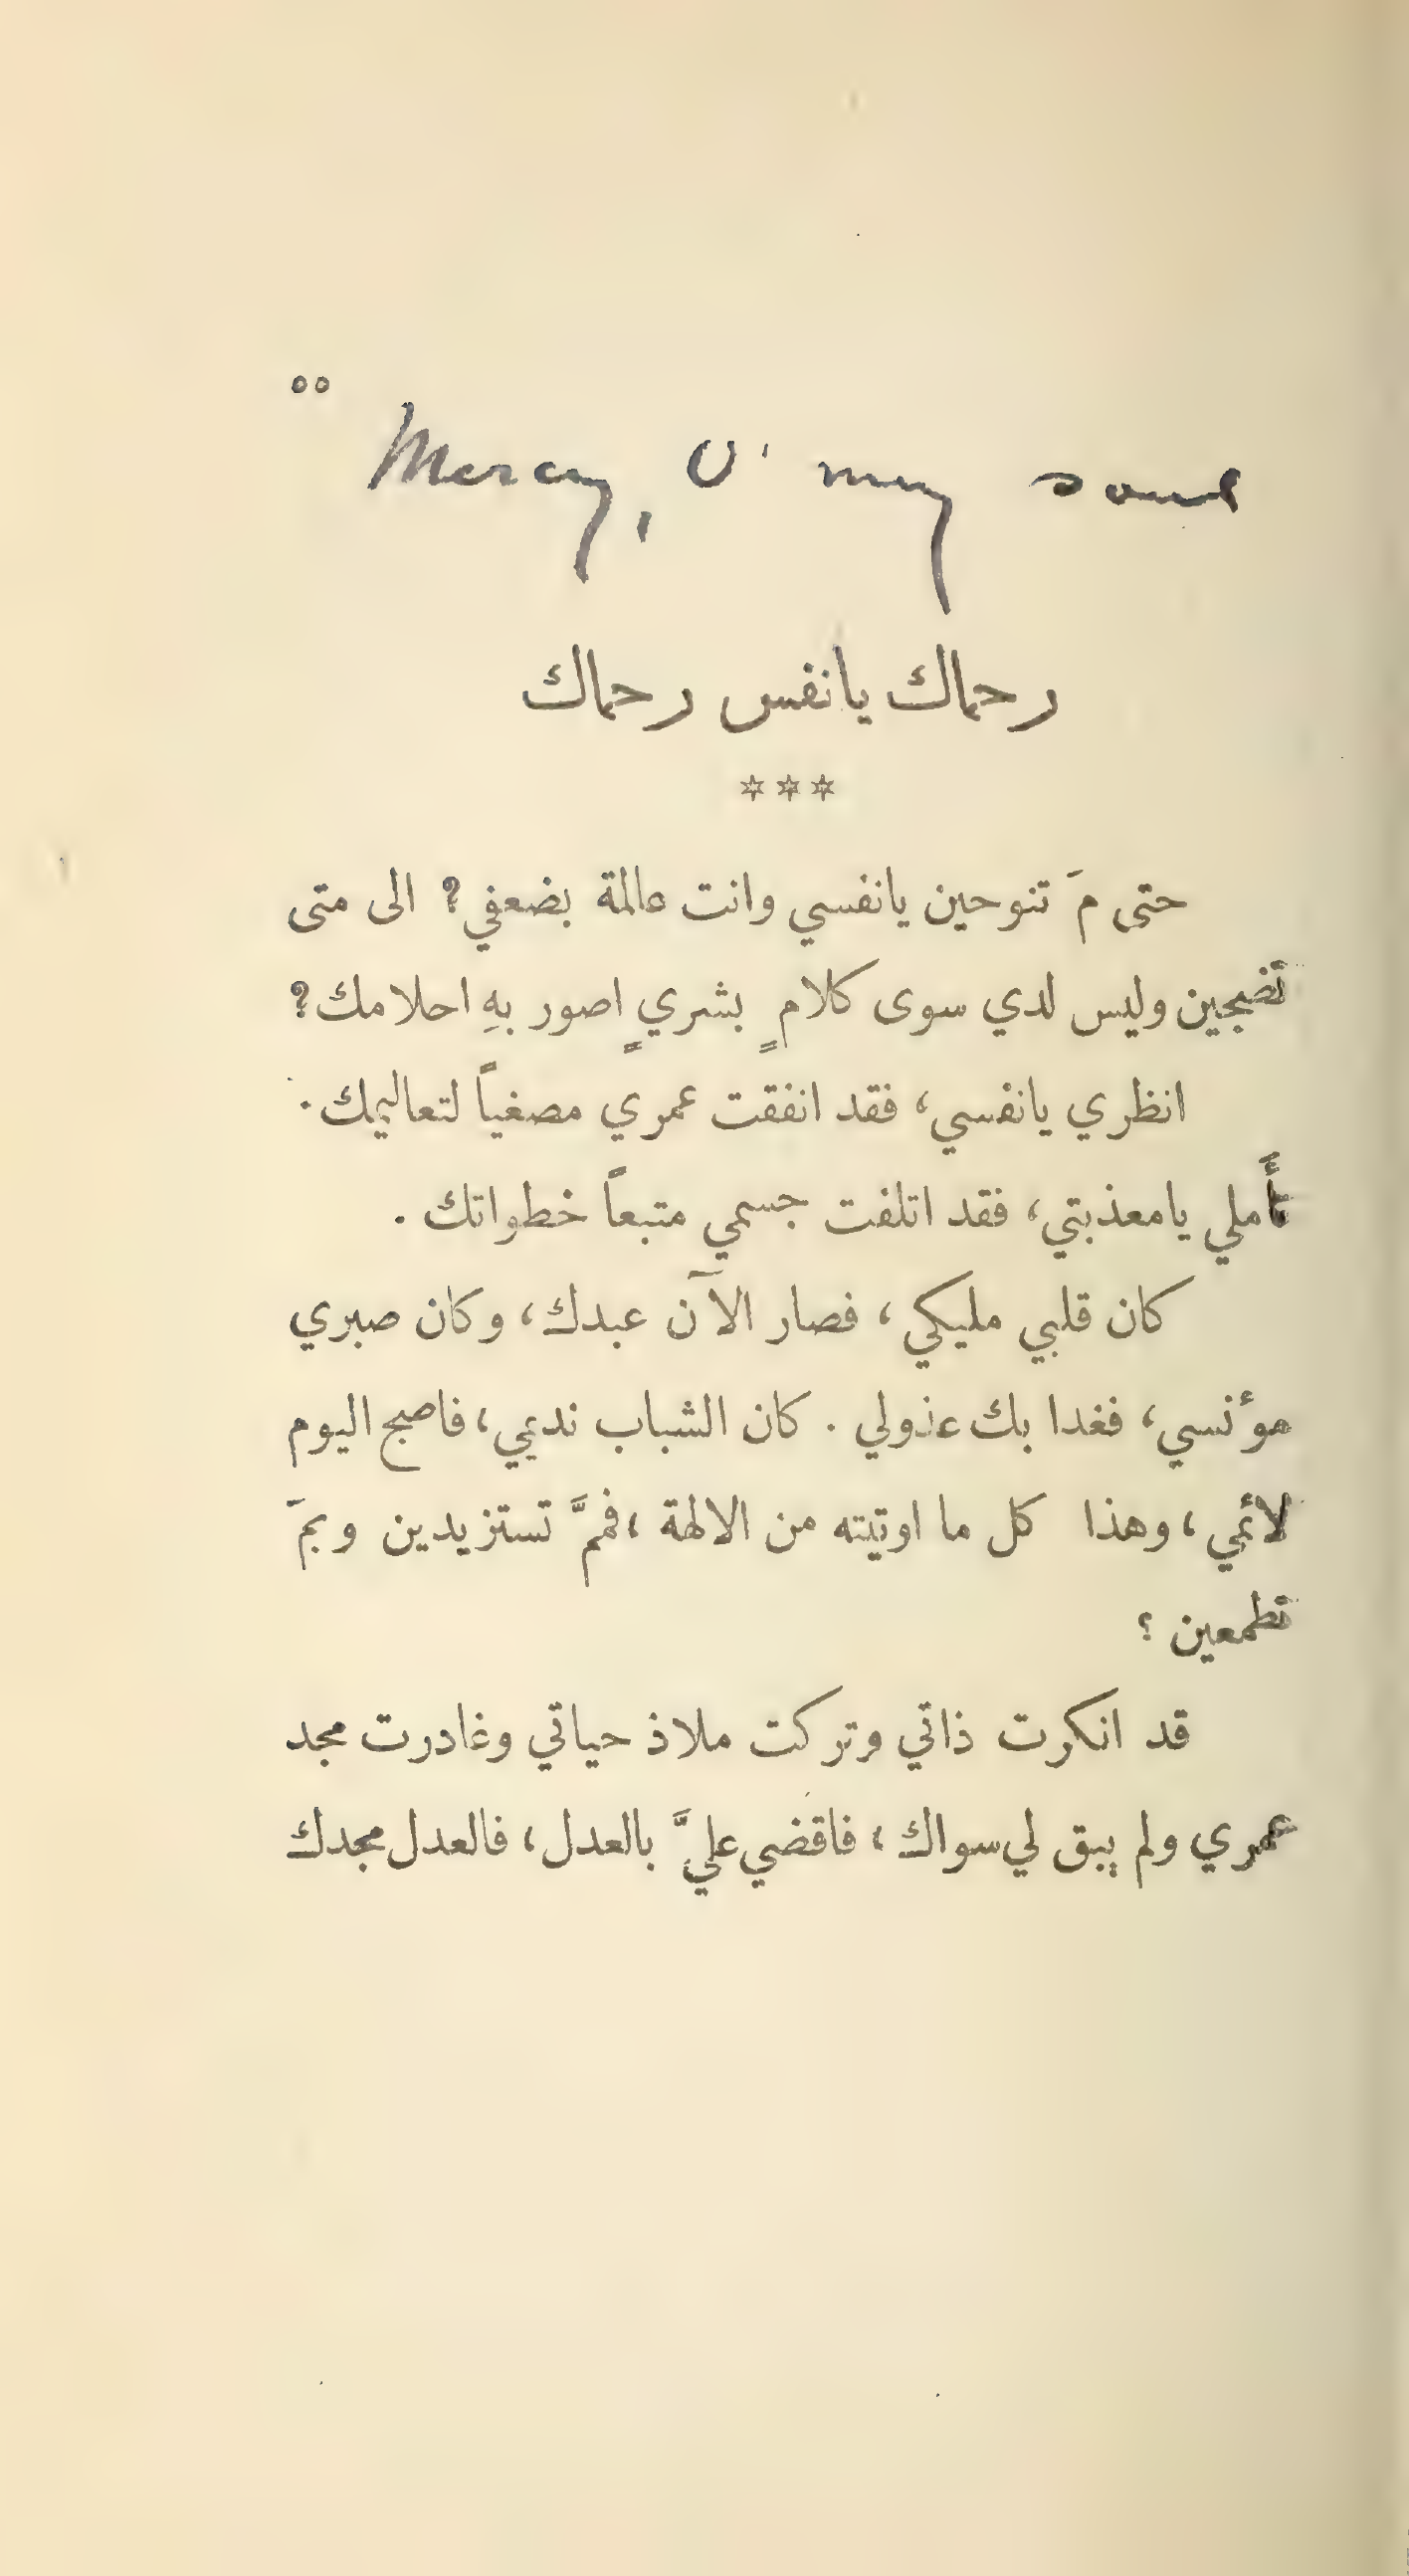 ٥٥
Mercy, O' my soul
رحماك يانفس رحماك
***
حتى مَ تنوحين يانفسي وانت عالمة بضعفي؟ الى متى
تضجين وليس لدي سوى كلامٍ بشريٍ اصور بهِ احلامك؟
انظري يانفسي، فقد انفقت عمري مصغياً لتعاليمك.
تأملي يامعذبتي، فقد اتلفت جسمي متبعاً خطواتك.
كان قلبي مليكي، فصار الآن عبدك، وكان صبري
مؤنسي، فغدا بك عذولي. كان الشباب نديمي، فاصبح اليوم
لائمي، وهذا كل ما اوتيته من الالهة، فممَّ تستزيدين وبمَ
تطمعين؟
قد انكرت ذاتي وتركت ملاذ حياتي وغادرت مجد
عمري ولم يبق لي سواك، فاقضي عليَّ بالعدل، فالعدل مجدك